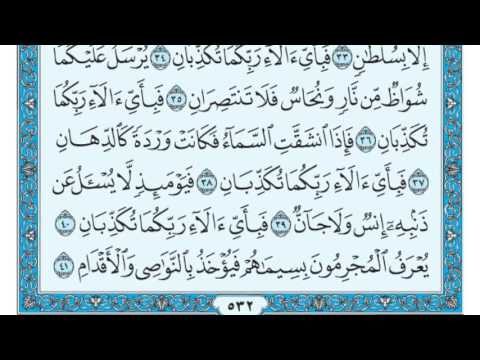 إِلَّا بِسُلْطَٰنٍ ٣٣ فَبِأَيِّ ءَالَآءِ رَبِّكُمَا تُكَذِّبَانِ ٣٤ يُرْسَلُ عَلَيْكُمَا
شُوَاظٌ مِّن نَّارٍ وَنُحَاسٌ فَلَا تَنتَصِرَانِ ٣٥ فَبِأَيِّ ءَالَآءِ رَبِّكُمَا
تُكَذِّبَانِ ٣٦ فَإِذَا ٱنشَقَّتِ ٱلسَّمَآءُ فَكَانَتْ وَرْدَةً كَٱلدِّهَانِ
٣٧ فَبِأَيِّ ءَالَآءِ رَبِّكُمَا تُكَذِّبَانِ ٣٨ فَيَوْمَئِذٍ لَّا يُسْـَٔلُ عَن
ذَنۢبِهِۦٓ إِنسٌ وَلَا جَآنٌّ ٣٩ فَبِأَيِّ ءَالَآءِ رَبِّكُمَا تُكَذِّبَانِ ٤٠
يُعْرَفُ ٱلْمُجْرِمُونَ بِسِيمَٰهُمْ فَيُؤْخَذُ بِٱلنَّوَٰصِى وَٱلْأَقْدَامِ ٤١
٥٣٢